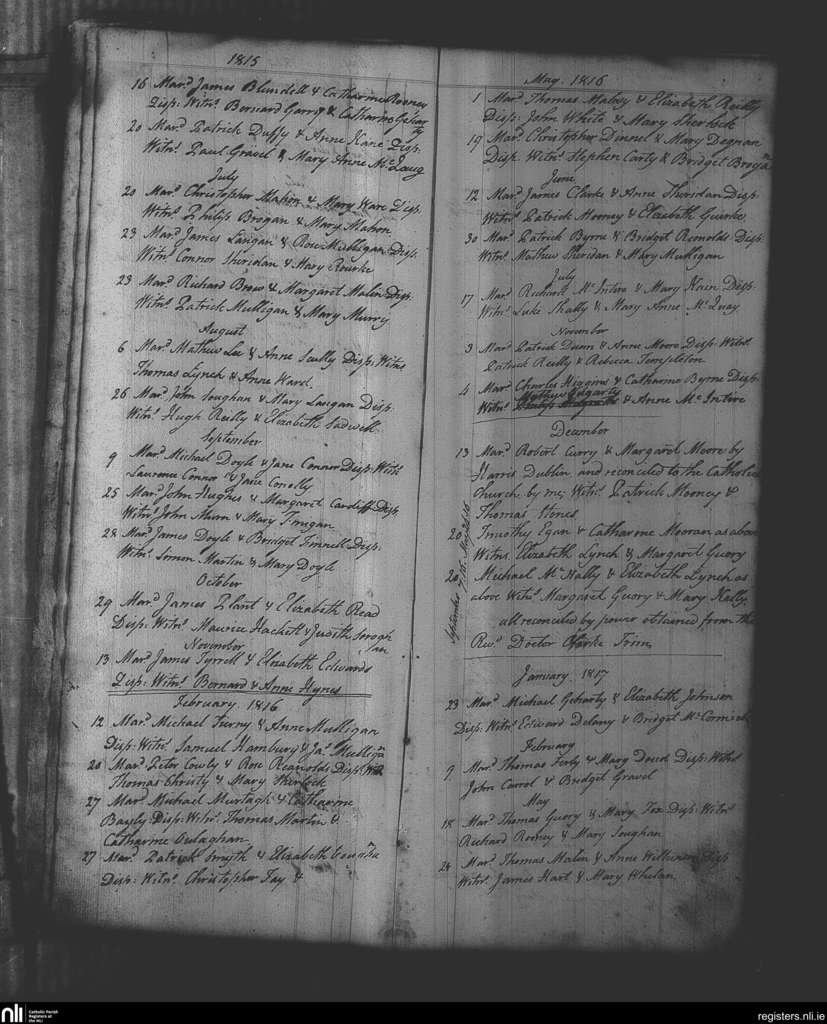 1815
16 Mard. James Blundell & Catharine Rooney
Disp: Witns. Bernard Garry & Catharine
20 Mard. Patrick Duffy & Anne Kane Disp.
Witns. Paul Gravel & Mary Anne McLaug
July
20 Mard. Christopher Mahon & Mary Ware Disp.
Witns. Philip Brogan & Mary Mahon
23 Mard. James Langan & Rose Mulligan Disp.
Witns. Connor Sheridan & Mary Rourke
23 Mard. Richard Brow & Margaret Malin Disp.
Witns. Patrick Mulligan & Mary Murry
August
6 Mard. Mathew Lee & Anne Scully Disp: Witns
Thomas Lynch & Anne Ward.
26 Mard. John Soughan & Mary Langan Disp.
Witns. Hugh Reilly & Elizabeth Sadwell
September
9 Mard. Michael Doyle & Jane Connor Disp: Witns.
Laurence Connor & Jane Conolly
25 Mard. John Hughes & Margaret Cardiff Disp.
Witns. John & Mary Finegan
28 Mard. James Doyle & Bridget Finnell Disp:
Witns. Simon Martin & Mary Doyle
October
29 Mard. James Plant & Elizabeth Read
Disp: Witns. Maurice Hackett & Judith
November
13 Mard. James Tyrrell & Elizabeth Edwards
Disp: Witns. Bernard & Anne Hynes
February. 1816
12 Mard. Michael Furny & Anne Mulligan
Disp: Witns. Samuel Hambury & Jas. Mulligan
20 Mard. Peter Cowly & Rose Reanolds Disp: Wit
Thomas Christy & Mary Sherlock
27 Mard. Michael Murtagh & Catharine
Bayly Disp: Witns. Thomas Martin &
Catharine Geulaghan
27 Mard. Patrick Smyth & Elizabeth
Disp: Witns. Christopher Fay &
May. 1816
1 Mard. Thomas Malvy & Elizabeth Reilly
Disp: John White & Mary Sherlock
19 Mard. Christopher Dinnel & Mary Degnan
Disp. Witns. Stephen Carty & Bridget Brogan
June
12 Mard. James Clarke & Anne Sheridan Disp:
Witns. Patrick Mooney & Elizabeth Guirke
30 Mard. Patrick Byrne & Bridget Remolds Disp:
Witns. Mathew Sheridan & Mary Mulligan
July
17 Mard. Richard McIntire & Mary Kain Disp:
Witns. Luke Shally & Mary Anne McQuay
November
3 Mard. Patrick Dunn & Anne Moore Disp: Witns.
Patrick Reilly & Rebecca Templeton
4 Mard. Charles Higgins & Catharine Byrne Disp:
Mathew
Witns. & Anne McIntire
December
13 Mard. Robert Curry & Margaret Moore by
Harris Dublin and reconciled to the Catholic
Church by me; Witns. Patrick Mooney &
Thomas Hones
20 Timothy Egan & Catharine Mooran as above
Witns Elizabeth Lynch & Margaret Guory
20 Michael McNally & Elizabeth Lynch as
above Witns. Margaret Guory & Mary Kelly
all reconciled by power obtained from the
Revd. Doctor Clarke Trim,
September
January. 1817
23 Mard. Michael Geharty & Elizabeth Johnson
Disp: Witns. Edward Delany & Bridget McCormick
February
9 Mard. Thomas Ferly & Mary Doud Disp: Witns
John Carrol & Bridget Gravel
May
18 Mard. Thomas Guory & Mary Fox Disp: Witns.
Richard Rooney & Mary Soughan
24 Mard. Thomas Malin & Anne Wilkinson Disp
Witns. James Hart & Mary Whelan
nli Catholic Parish
Registers at
the NLI
registers.nli.ie